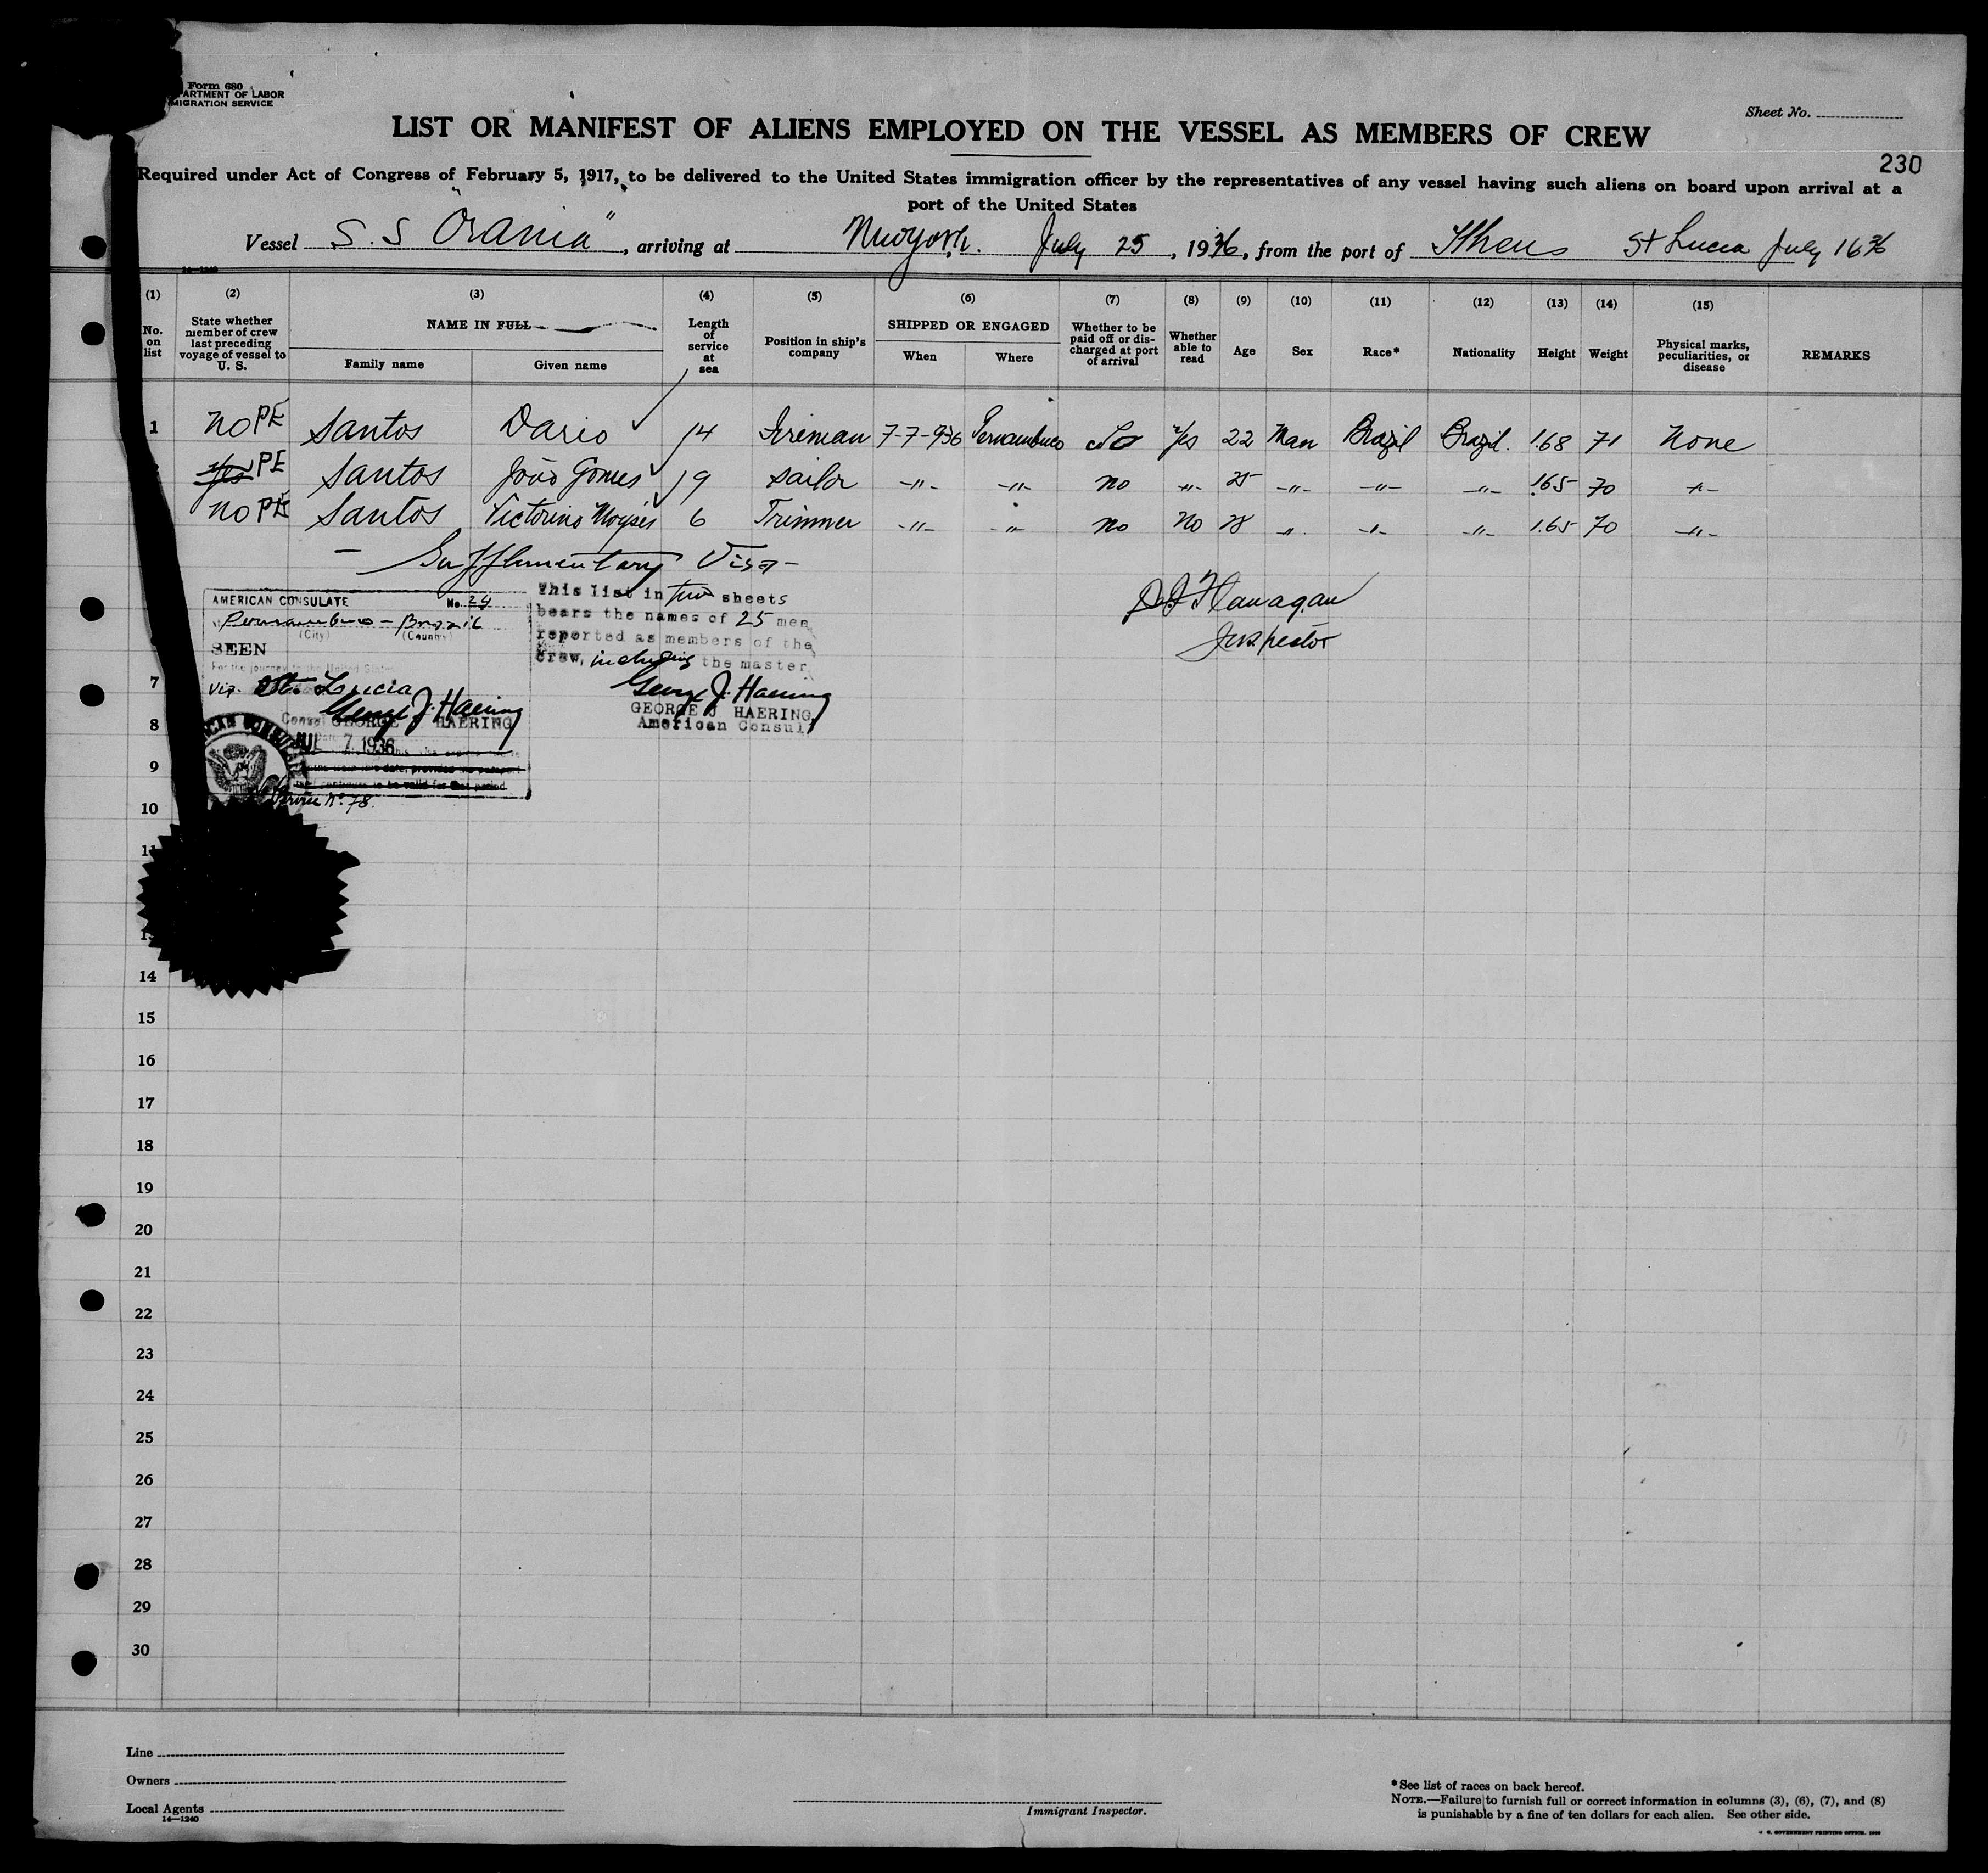 Form 680
ARTMENT OF LABOR
MIGRATION SERVICE
Sheet No.
LIST OR MANIFEST OF ALIENS EMPLOYED ON THE VESSEL AS MEMBERS OF CREW
230
Required under Act of Congress of February 5, 1917, to be delivered to the United States immigration officer by the representatives of any vessel having such aliens on board upon arrival at a
port of the United States
Vessel S.S "Orania", arriving at New York. July 25, 1936, from the port of St Lucia July 16 36
14—1240
(1) (2) (3) (4) (5) (6) (7) (8) (9) (10) (11) (12) (13) (14) (15)
No. on list
State whether member of crew last preceding voyage of vessel to U. S.
NAME IN FULL
Family name
Given name
Length of service at sea
Position in ship's company
SHIPPED OR ENGAGED
When
Where
Whether to be paid off or discharged at port of arrival
Whether able to read
Age
Sex
Race*
Nationality
Height
Weight
Physical marks, peculiarities, or disease
REMARKS
1 no PE Santos Dario 14 Fireman 7-7-936 Pernambuco Yes 22 Man Brazil Brazil. 1.68 71 None
yes PE Santos João Gomes 19 sailor -"- -"- no -"- 25 -"- -"- -"- 1.65 70 -"-
no PE Santos Victorino Moyses 6 Trimmer -"- -"- no No 28 " -"- -"- 1.65 70 -"-
- Supplementary Visa -
AMERICAN CONSULATE No. 24
Pernambuco - Brazil
(City) (Country)
SEEN
For the journey to the United States
Via. St. Lucia
George J. Haering
Consul GEORGE J HAERING
JUL 7 1936
Service No. 78.
This list in two sheets
bears the names of 25 men
reported as members of the
crew, including the master
George J. Haering
GEORGE J HAERING
American Consul
Flanagan
Inspector
7
8
9
10
11
13
14
15
16
17
18
19
20
21
22
23
24
25
26
27
28
29
30
Line
Owners
Local Agents
14—1240
Immigrant Inspector.
*See list of races on back hereof.
NOTE.—Failure to furnish full or correct information in columns (3), (6), (7), and (8)
is punishable by a fine of ten dollars for each alien. See other side.
U. S. GOVERNMENT PRINTING OFFICE